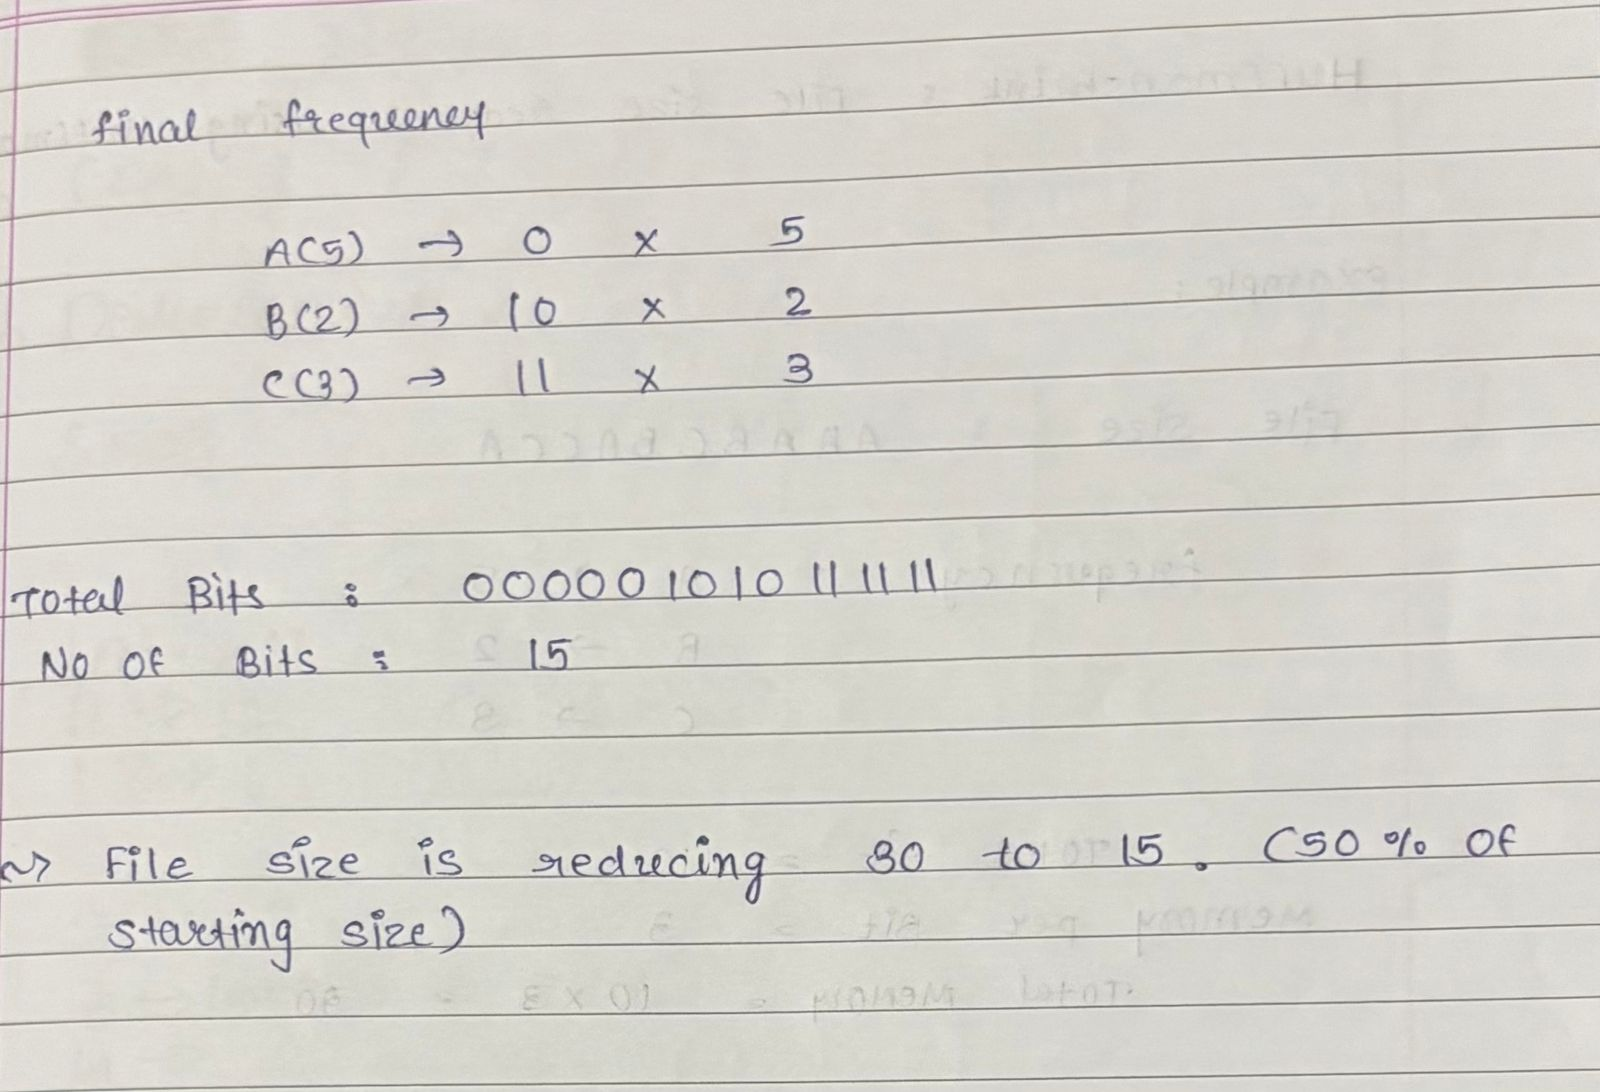 final frequency
A(5) → 0 x 5
B(2) → 10 x 2
C(3) → 11 x 3
Total Bits : 000001010111111
No Of Bits : 15
~> File size is reducing 30 to 15. (50% Of
starting size)